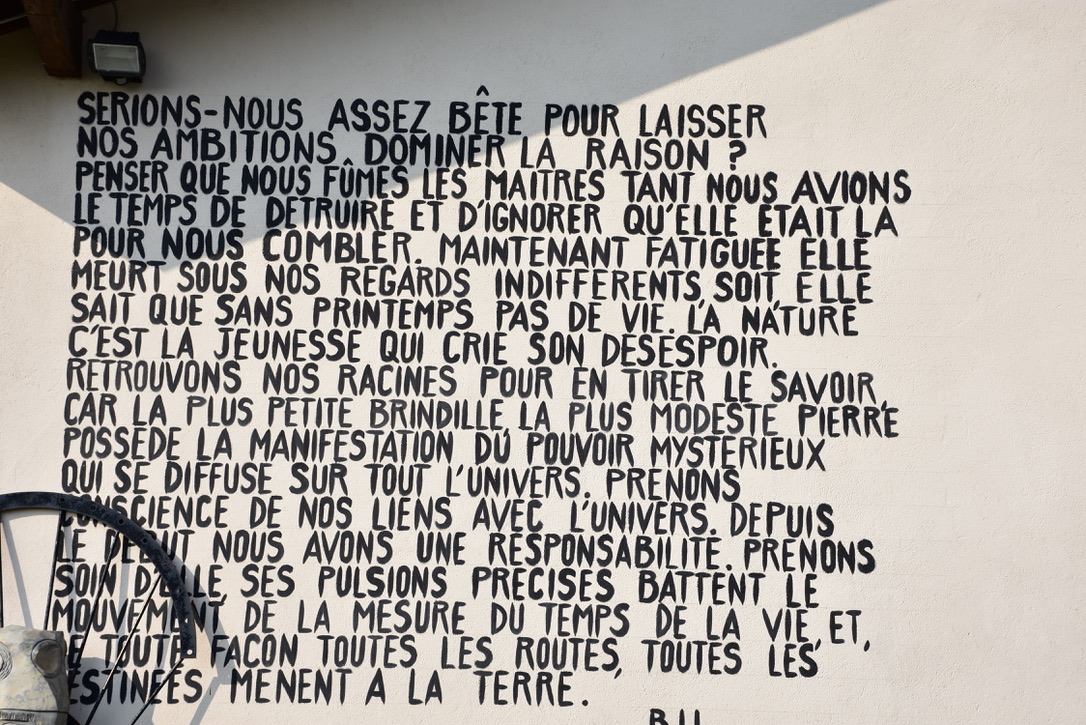 SERIONS-NOUS ASSEZ BÊTE POUR LAISSER
NOS AMBITIONS DOMINER LA RAISON ?
PENSER QUE NOUS FÛMES LES MAITRES TANT NOUS AVIONS
LE TEMPS DE DETRUIRE ET D'IGNORER QU'ELLE ÉTAIT LA
POUR NOUS COMBLER. MAINTENANT FATIGUÉE ELLE
MEURT SOUS NOS REGARDS INDIFFERENTS, SOIT, ELLE
SAIT QUE SANS PRINTEMPS PAS DE VIE. LA NATURE
C'EST LA JEUNESSE QUI CRIE SON DESESPOIR.
RETROUVONS NOS RACINES POUR EN TIRER LE SAVOIR,
CAR LA PLUS PETITE BRINDILLE, LA PLUS MODESTE PIERRE
POSSEDE LA MANIFESTATION DU POUVOIR MYSTERIEUX
QUI SE DIFFUSE SUR TOUT L'UNIVERS. PRENONS
CONSCIENCE DE NOS LIENS AVEC L'UNIVERS. DEPUIS
LE DEBUT NOUS AVONS UNE RESPONSABILITE. PRENONS
SOIN D'ELLE, SES PULSIONS PRECISES BATTENT LE
MOUVEMENT, DE LA MESURE DU TEMPS DE LA VIE, ET,
DE TOUTE FACON TOUTES LES ROUTES, TOUTES LES
DESTINÉES MENENT A LA TERRE.